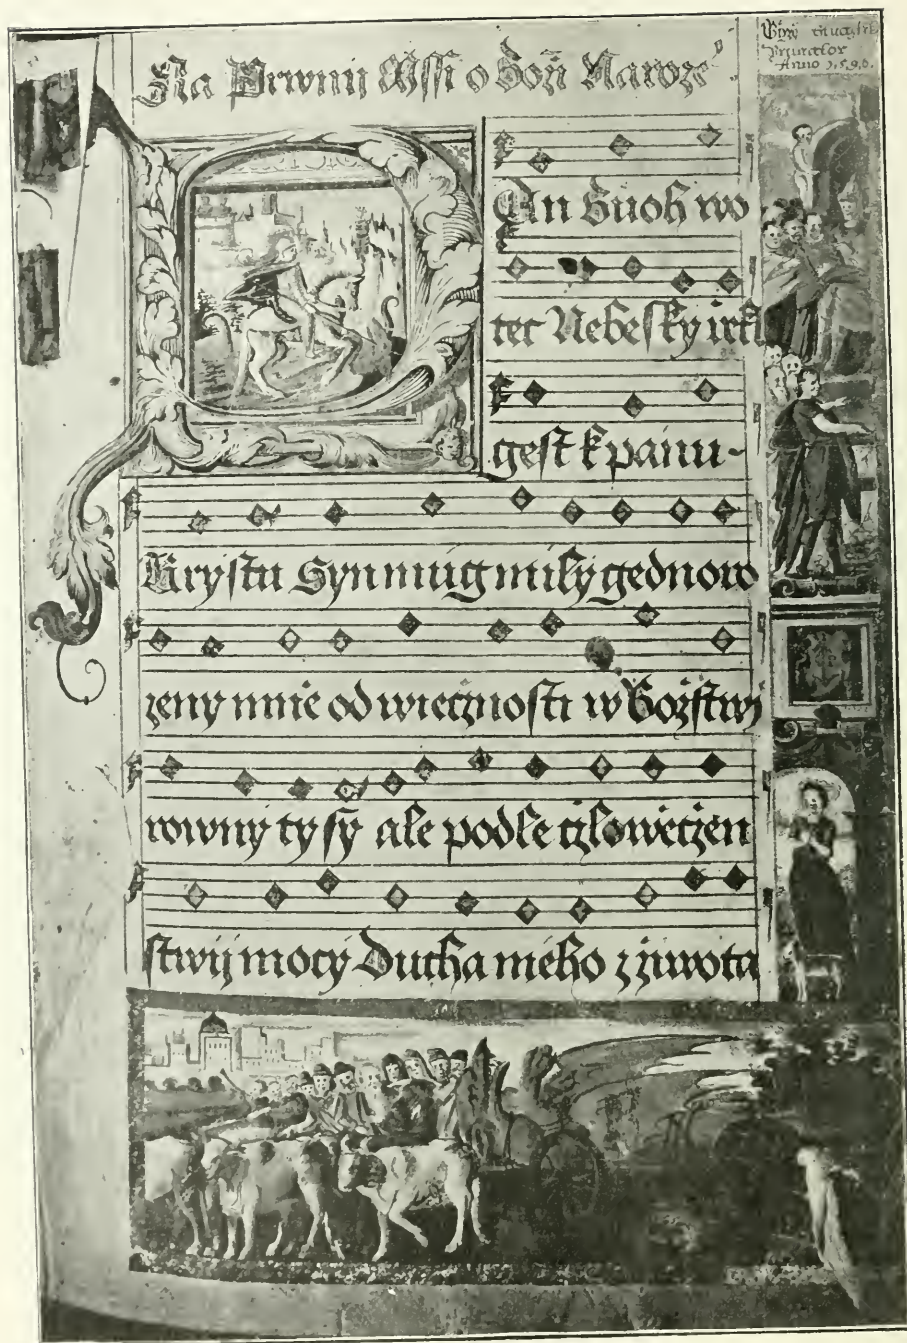 Na Prwnij Mssi o Boži Naroze
Anno 1.5.9.0.
An Buoh wo
tec Nebesky irži
gest k panu-
Krystu Syn mug mily gednoro
zeny mnie od wiecznosti w Božstwij
rowny ty sy ale podle czlowieczen
stwij mocy Ducha meho z žiwota